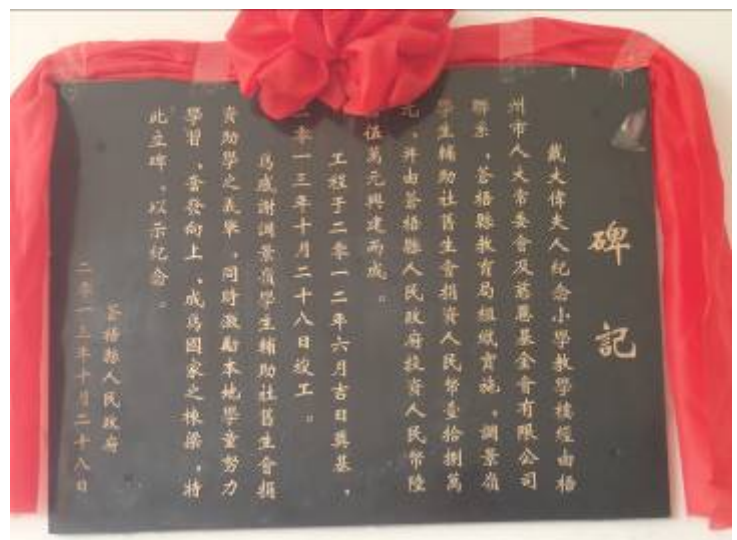 碑記
戴文偉夫人紀念小學教學樓經由梧
州市人大常委會及慈恩基金會有限公司
聯系，蒼梧縣教育局組織實施，調景嶺
學生輔助社舊生會捐資人民幣壹拾捌萬
元，并由蒼梧縣人民政府投資人民幣陸
伍萬元興建而成。
工程于二零一二年六月吉日奠基，
二零一三年十月二十八日竣工。
爲感謝調景嶺學生輔助社舊生會捐
資助學之義舉，同時激勵本地學童努力
學習，奮發向上，成爲國家之棟梁，特
此立碑，以示紀念。
蒼梧縣人民政府
二零一三年十月二十八日